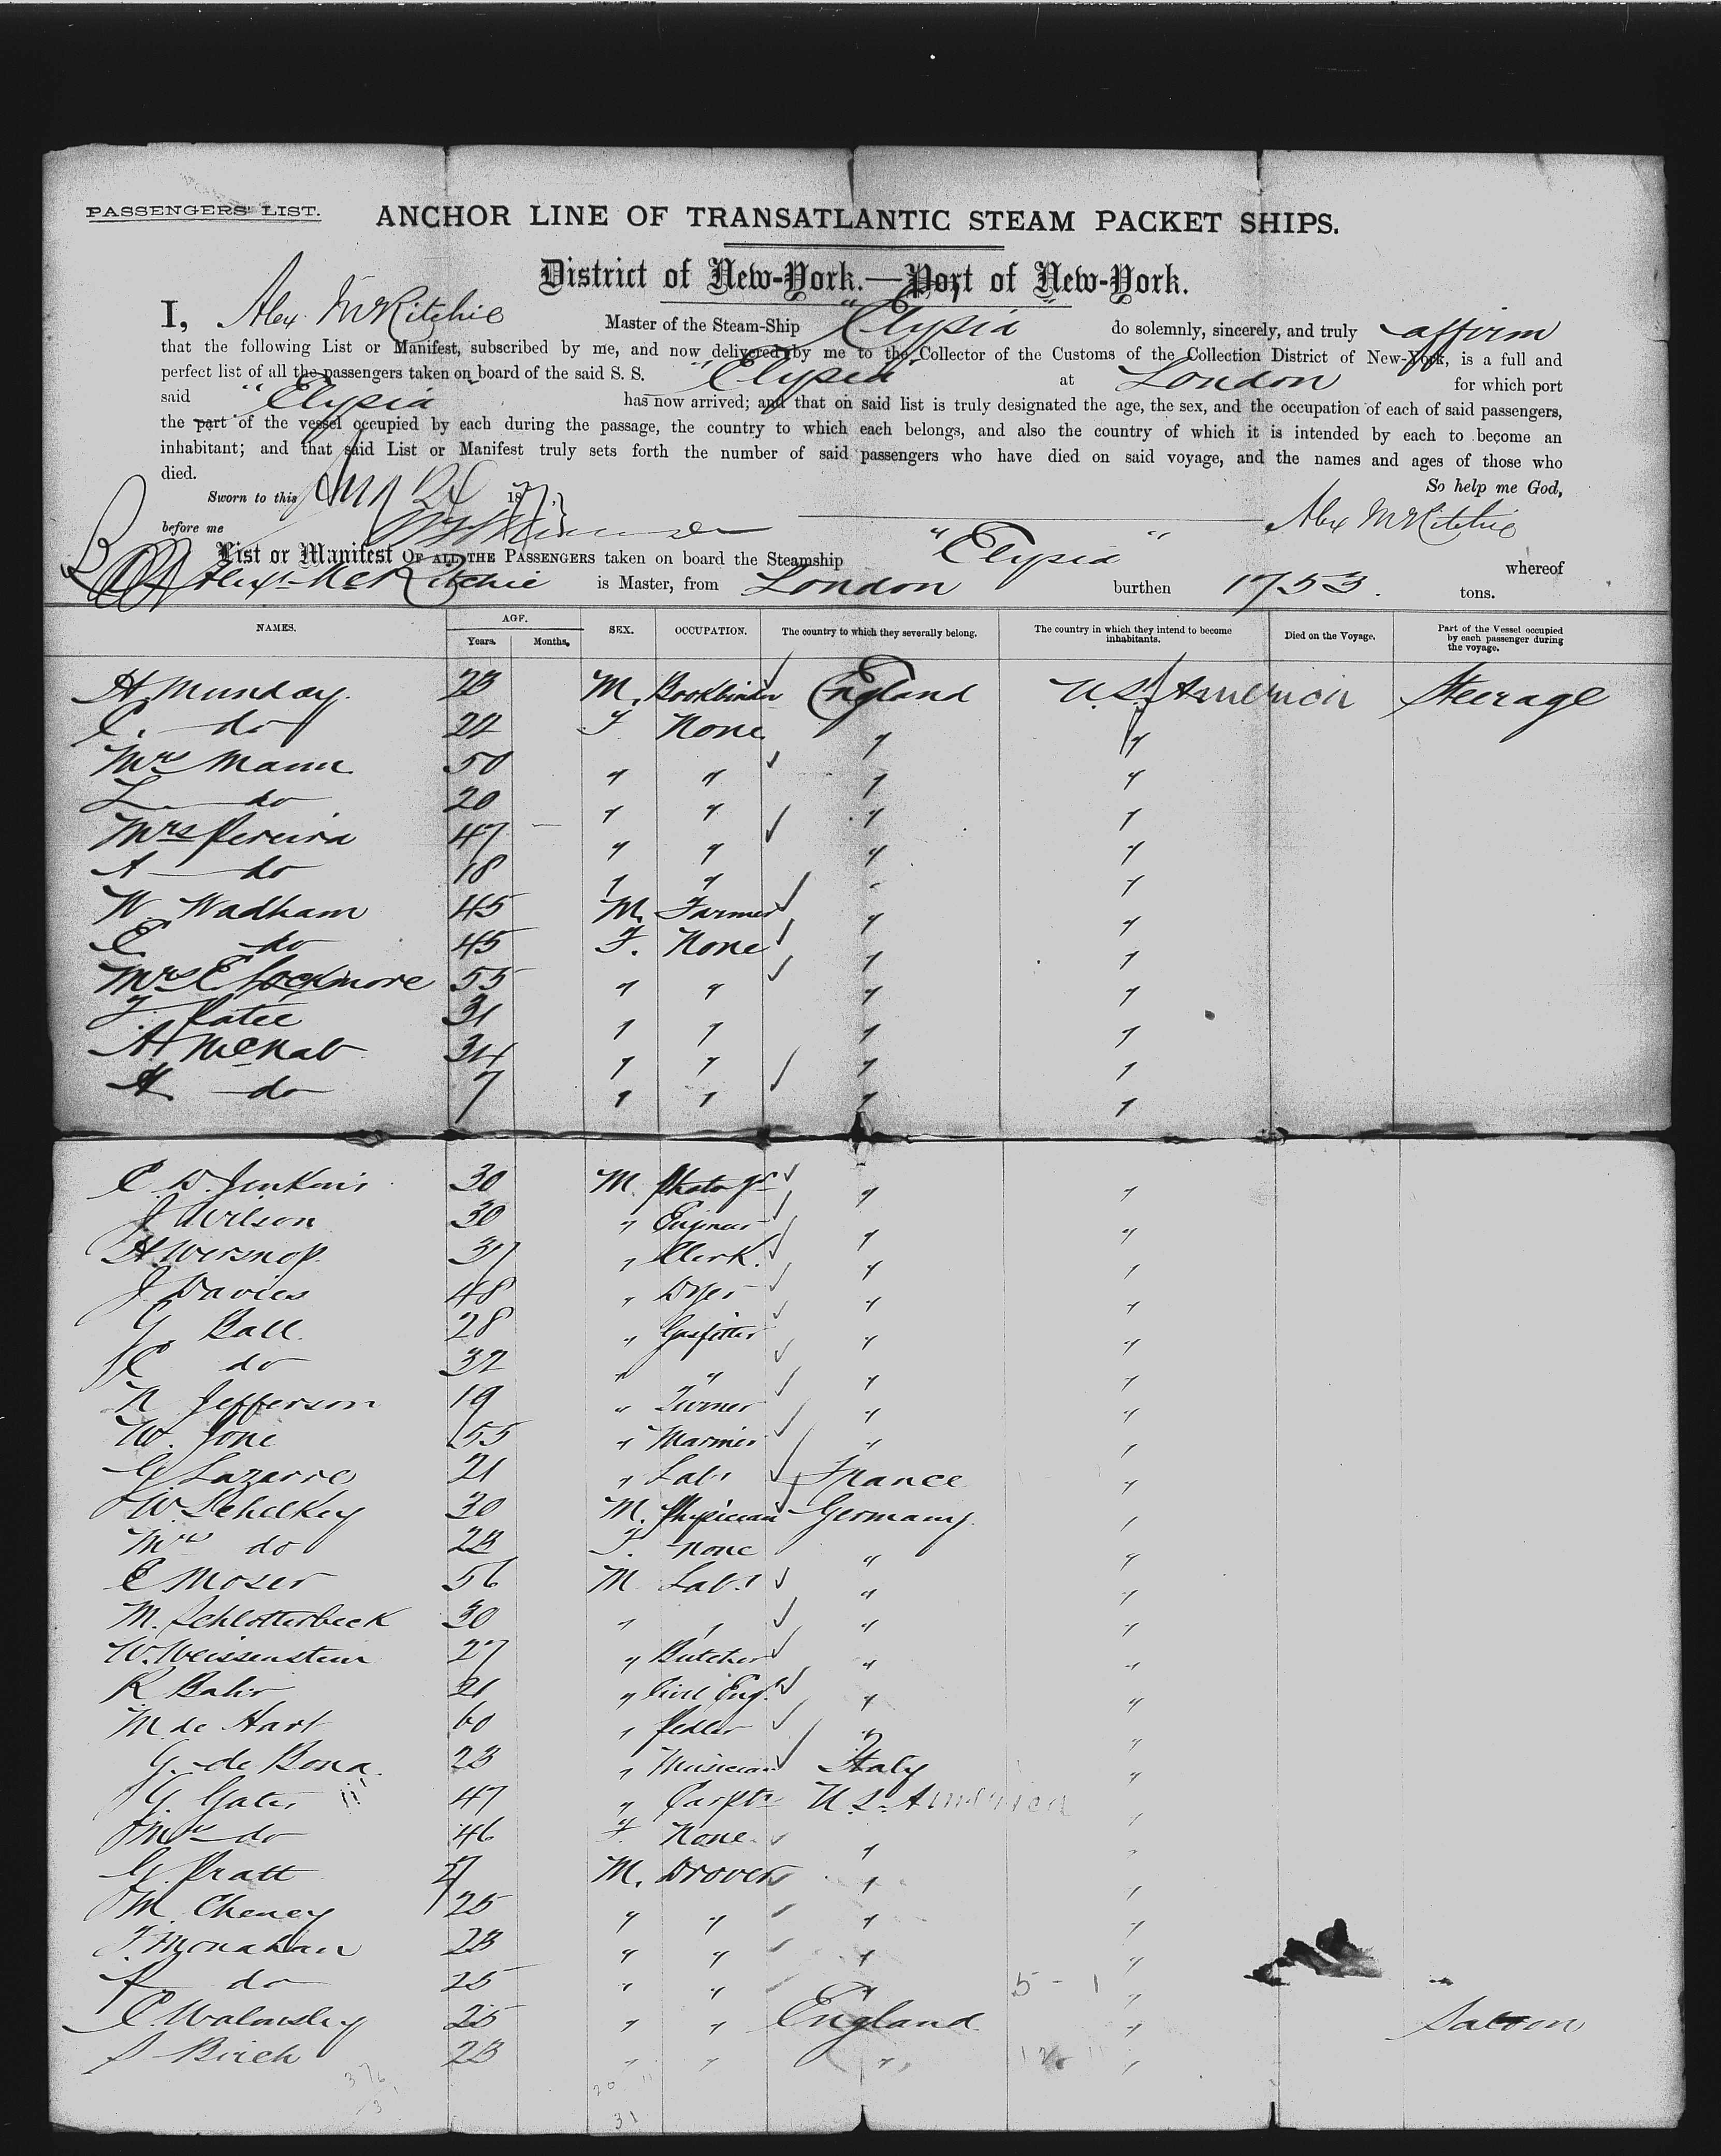 PASSENGERS' LIST. ANCHOR LINE OF TRANSATLANTIC STEAM PACKET SHIPS.
District of New-York.—Port of New-York.
I, Alex McRitchie Master of the Steam-Ship "Elysia" do solemnly, sincerely, and truly affirm
that the following List or Manifest, subscribed by me, and now delivered by me to the Collector of the Customs of the Collection District of New-York, is a full and
perfect list of all the passengers taken on board of the said S. S. "Elysia" at London for which port
said "Elysia" has now arrived; and that on said list is truly designated the age, the sex, and the occupation of each of said passengers,
the part of the vessel occupied by each during the passage, the country to which each belongs, and also the country of which it is intended by each to become an
inhabitant; and that said List or Manifest truly sets forth the number of said passengers who have died on said voyage, and the names and ages of those who
died.
So help me God,
Sworn to this 24 187
before me Alex McRitchie
List or Manifest OF ALL THE PASSENGERS taken on board the Steamship "Elysia" whereof
Alexr McRitchie is Master, from London burthen 1753. tons.
NAMES. AGE. Years. Months. SEX. OCCUPATION. The country to which they severally belong. The country in which they intend to become inhabitants. Died on the Voyage. Part of the Vessel occupied by each passenger during the voyage.
H Munday. 23 M. Bookbinder England U.S. America Steerage
C. do 24 F None " "
Mrs Mann 50 " " " "
L do 20 " " " "
Mrs Pereira 47 — " " " "
A do 18 " " " "
W Wadham 45 M. Farmer " "
E do 45 F. None " "
Mrs E 55 " " " "
31 " " " "
A McNab 34 " " " "
H do 7 " " " "
C. D. Jenkins 30 M. Photogr " "
J Wilson 30 " Engineer " "
H Worsnop. 37 " Clerk. " "
J Davies 48 " Dyer " "
G Ball. 28 " Gasfitter " "
C do 32 " " " "
N Jefferson 19 " Turner " "
W. Jone 55 " Mariner " "
G Lazarre 21 " Labr France "
W Schelkey 30 M. Physician Germany. "
Mrs do 23 F. None " "
E Moser 56 M Labr " "
M. Schlotterbeck 30 " " " "
W. Weissenstein 27 " Butcher " "
R Bahr 21 " Civil Engr " "
M. de Hart 60 " Pedler " "
G. de Bona. 23 " Musician Italy "
G. Gates 47 " Carptr U. S. America "
Mrs do 46 F. None " "
G. Pratt 27 M. Drover " "
M. Cheney 25 " " " "
T. Monahan 23 " " " "
do 25 " " " 5 - 1 "
C. Walmsley 25 " " England " Saloon
S Birch 23 " " " "
31